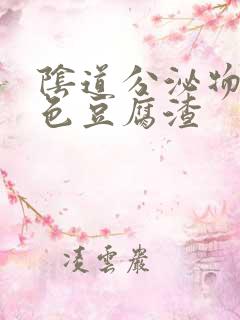 陰道分泌物
色豆腐渣
凌雲巖